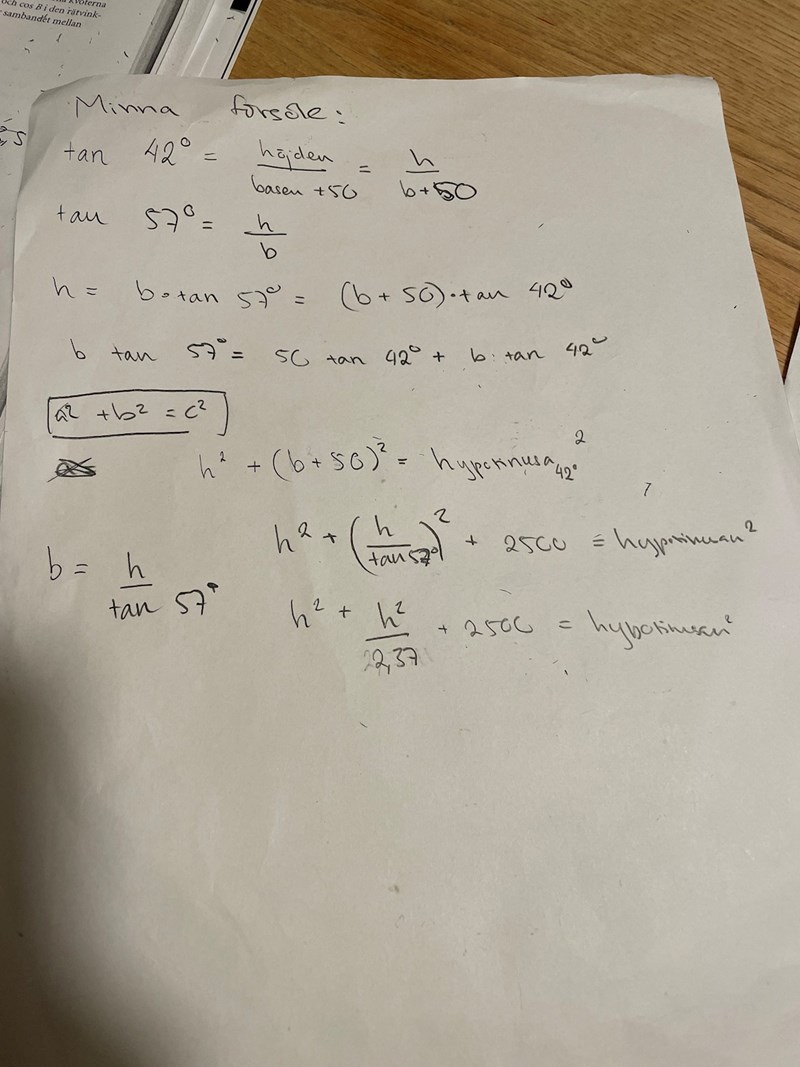 och cos B i den rätvink-
sambandet mellan
Minna försök:
tan 42° = höjden / basen + 50 = h / b + 50
tan 57° = h / b
h = b · tan 57° = (b + 50) · tan 42°
b tan 57° = 50 tan 42° + b · tan 42°
a² + b² = c²
h² + (b + 50)² = hypotinusa 42° ²
h² + (h / tan 57°)² + 2500 = hypotinusan²
b = h / tan 57°
h² + h² / 2,37 + 2500 = hypotinusan²